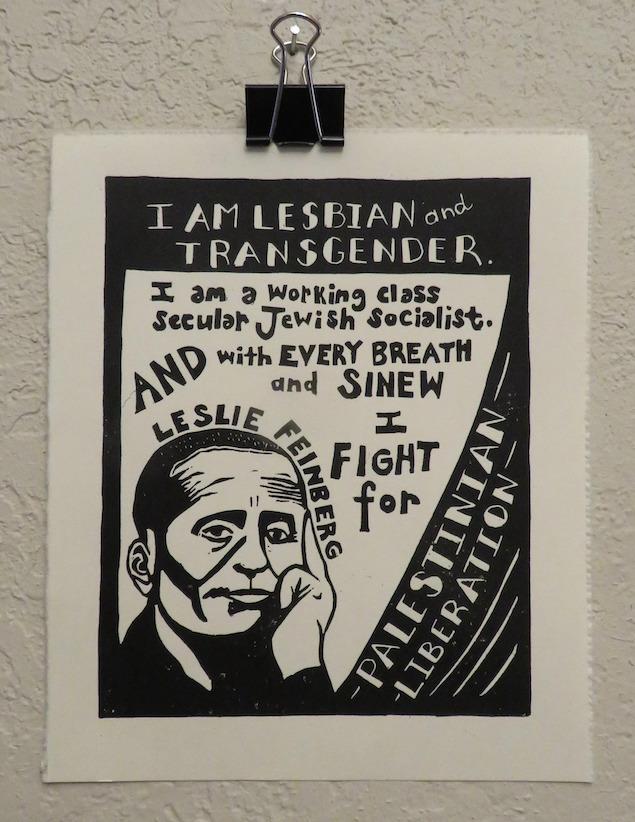 I AM LESBIAN and
TRANSGENDER.
I am a working class
secular Jewish socialist.
AND with EVERY BREATH
and SINEW
I
FIGHT
for
PALESTINIAN
LIBERATION
LESLIE FEINBERG